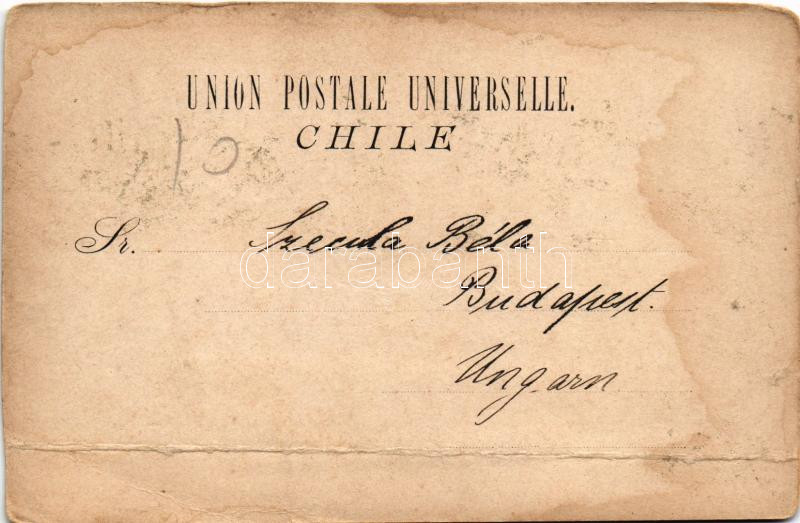 UNION POSTALE UNIVERSELLE.
CHILE
10
Sr. Szecula Béla
darabanth
Budapest.
Ungarn